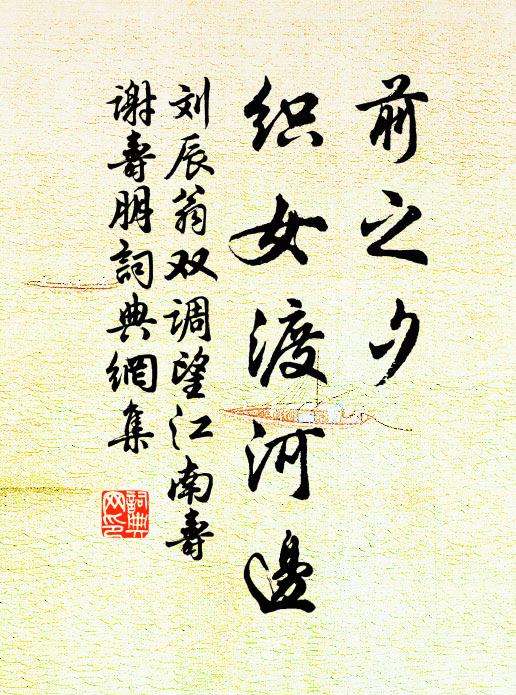 前之夕
织女渡河邊
刘辰翁双调望江南寿
谢寿朋詞典網集
詞典网印